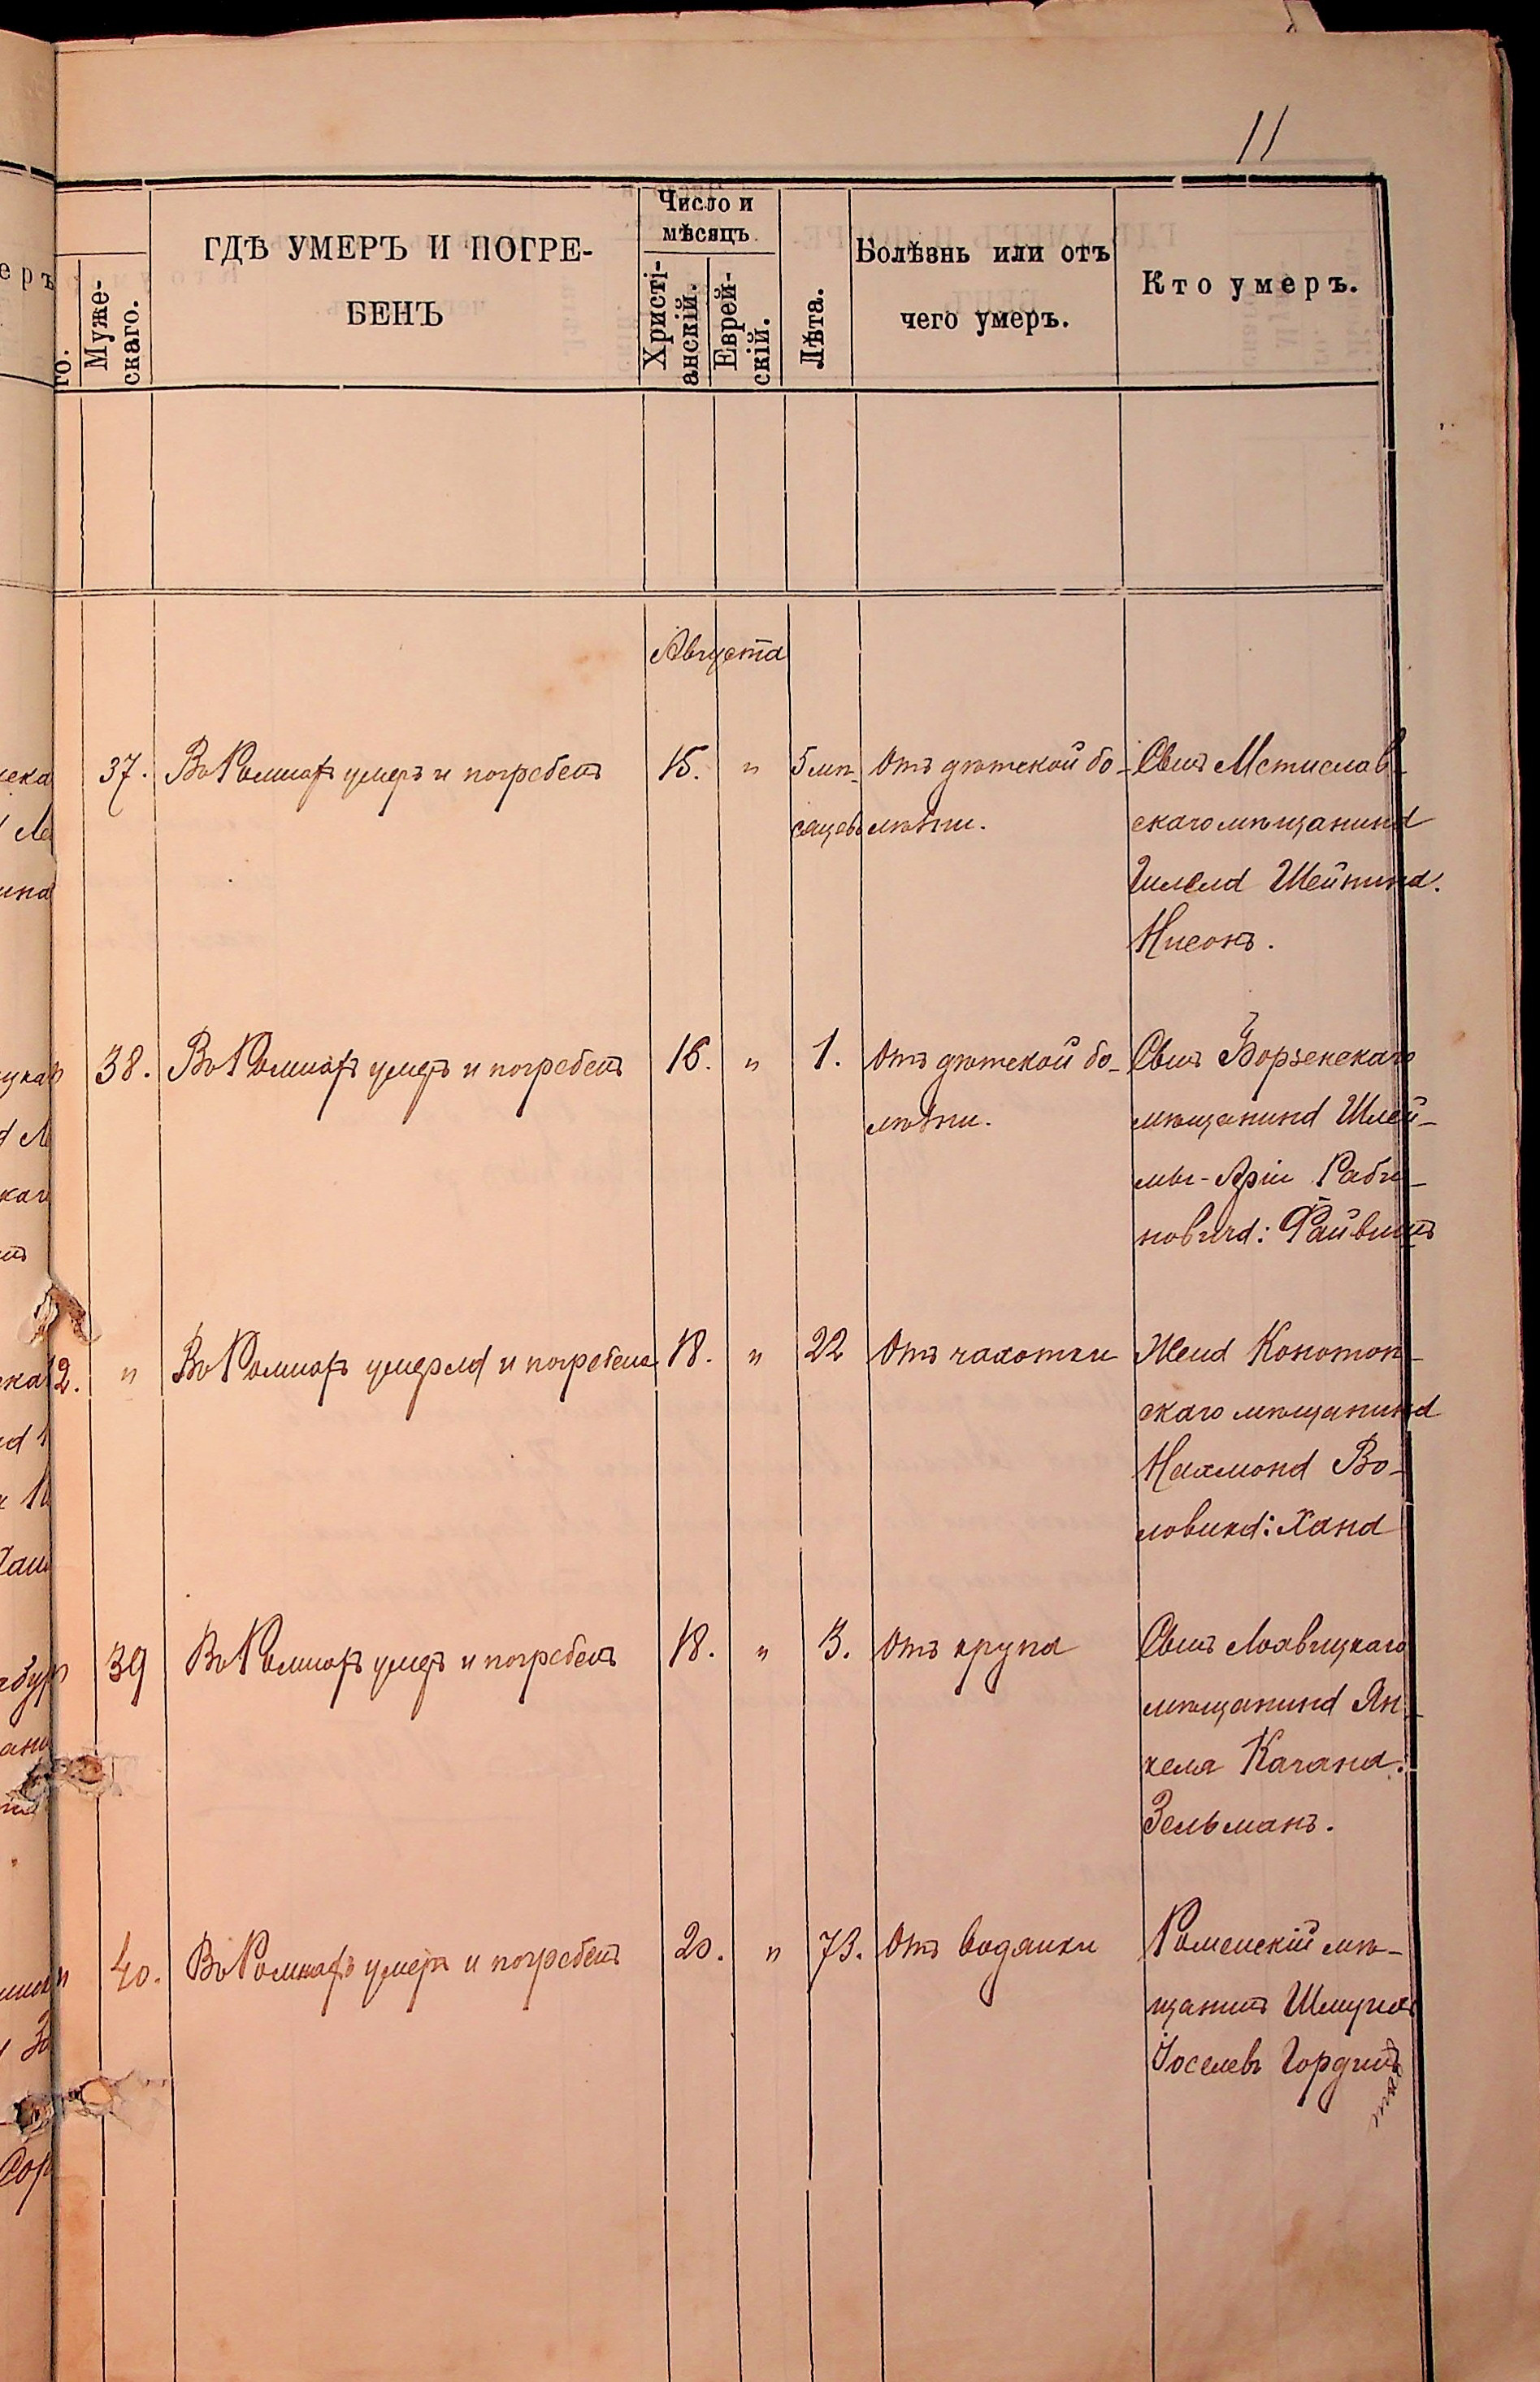 11
го.
Муже-
скаго.
ГДѢ УМЕРЪ И ПОГРЕ-
БЕНЪ
Число и
мѣсяцъ.
Христі-
анскій.
Еврей-
скій.
Лѣта.
Болѣзнь или отъ
чего умеръ.
Кто умеръ.
Августа
37. Въ Ромнахъ умеръ и погребенъ 15. " 5 мѣ- Отъ дѣтской бо- Сынъ Мстислав-
сяцевъ лѣзни. скаго мѣщанина
Гилела Шейнина:
Нисонъ.
38. Въ Ромнахъ умеръ и погребенъ 16. " 1. Отъ дѣтской бо- Сынъ Борзенскаго
лѣзни. мѣщанина Шлей-
мы-Арiи Раби-
новича: Файвишъ
12. " Въ Ромнахъ умерла и погребена 18. " 22 Отъ чахотки Жена Конотоп-
скаго мѣщанина
Нахмона Во-
ловика: Хана
39 Въ Ромнахъ умеръ и погребенъ 18. " 3. Отъ крупа Сынъ Лохвицкаго
мѣщанина Ян-
келя Качана:
Зельманъ.
40. Въ Ромнахъ умеръ и погребенъ 20. " 73. Отъ водянки Роменскій мѣ-
щанинъ
Іоселевъ